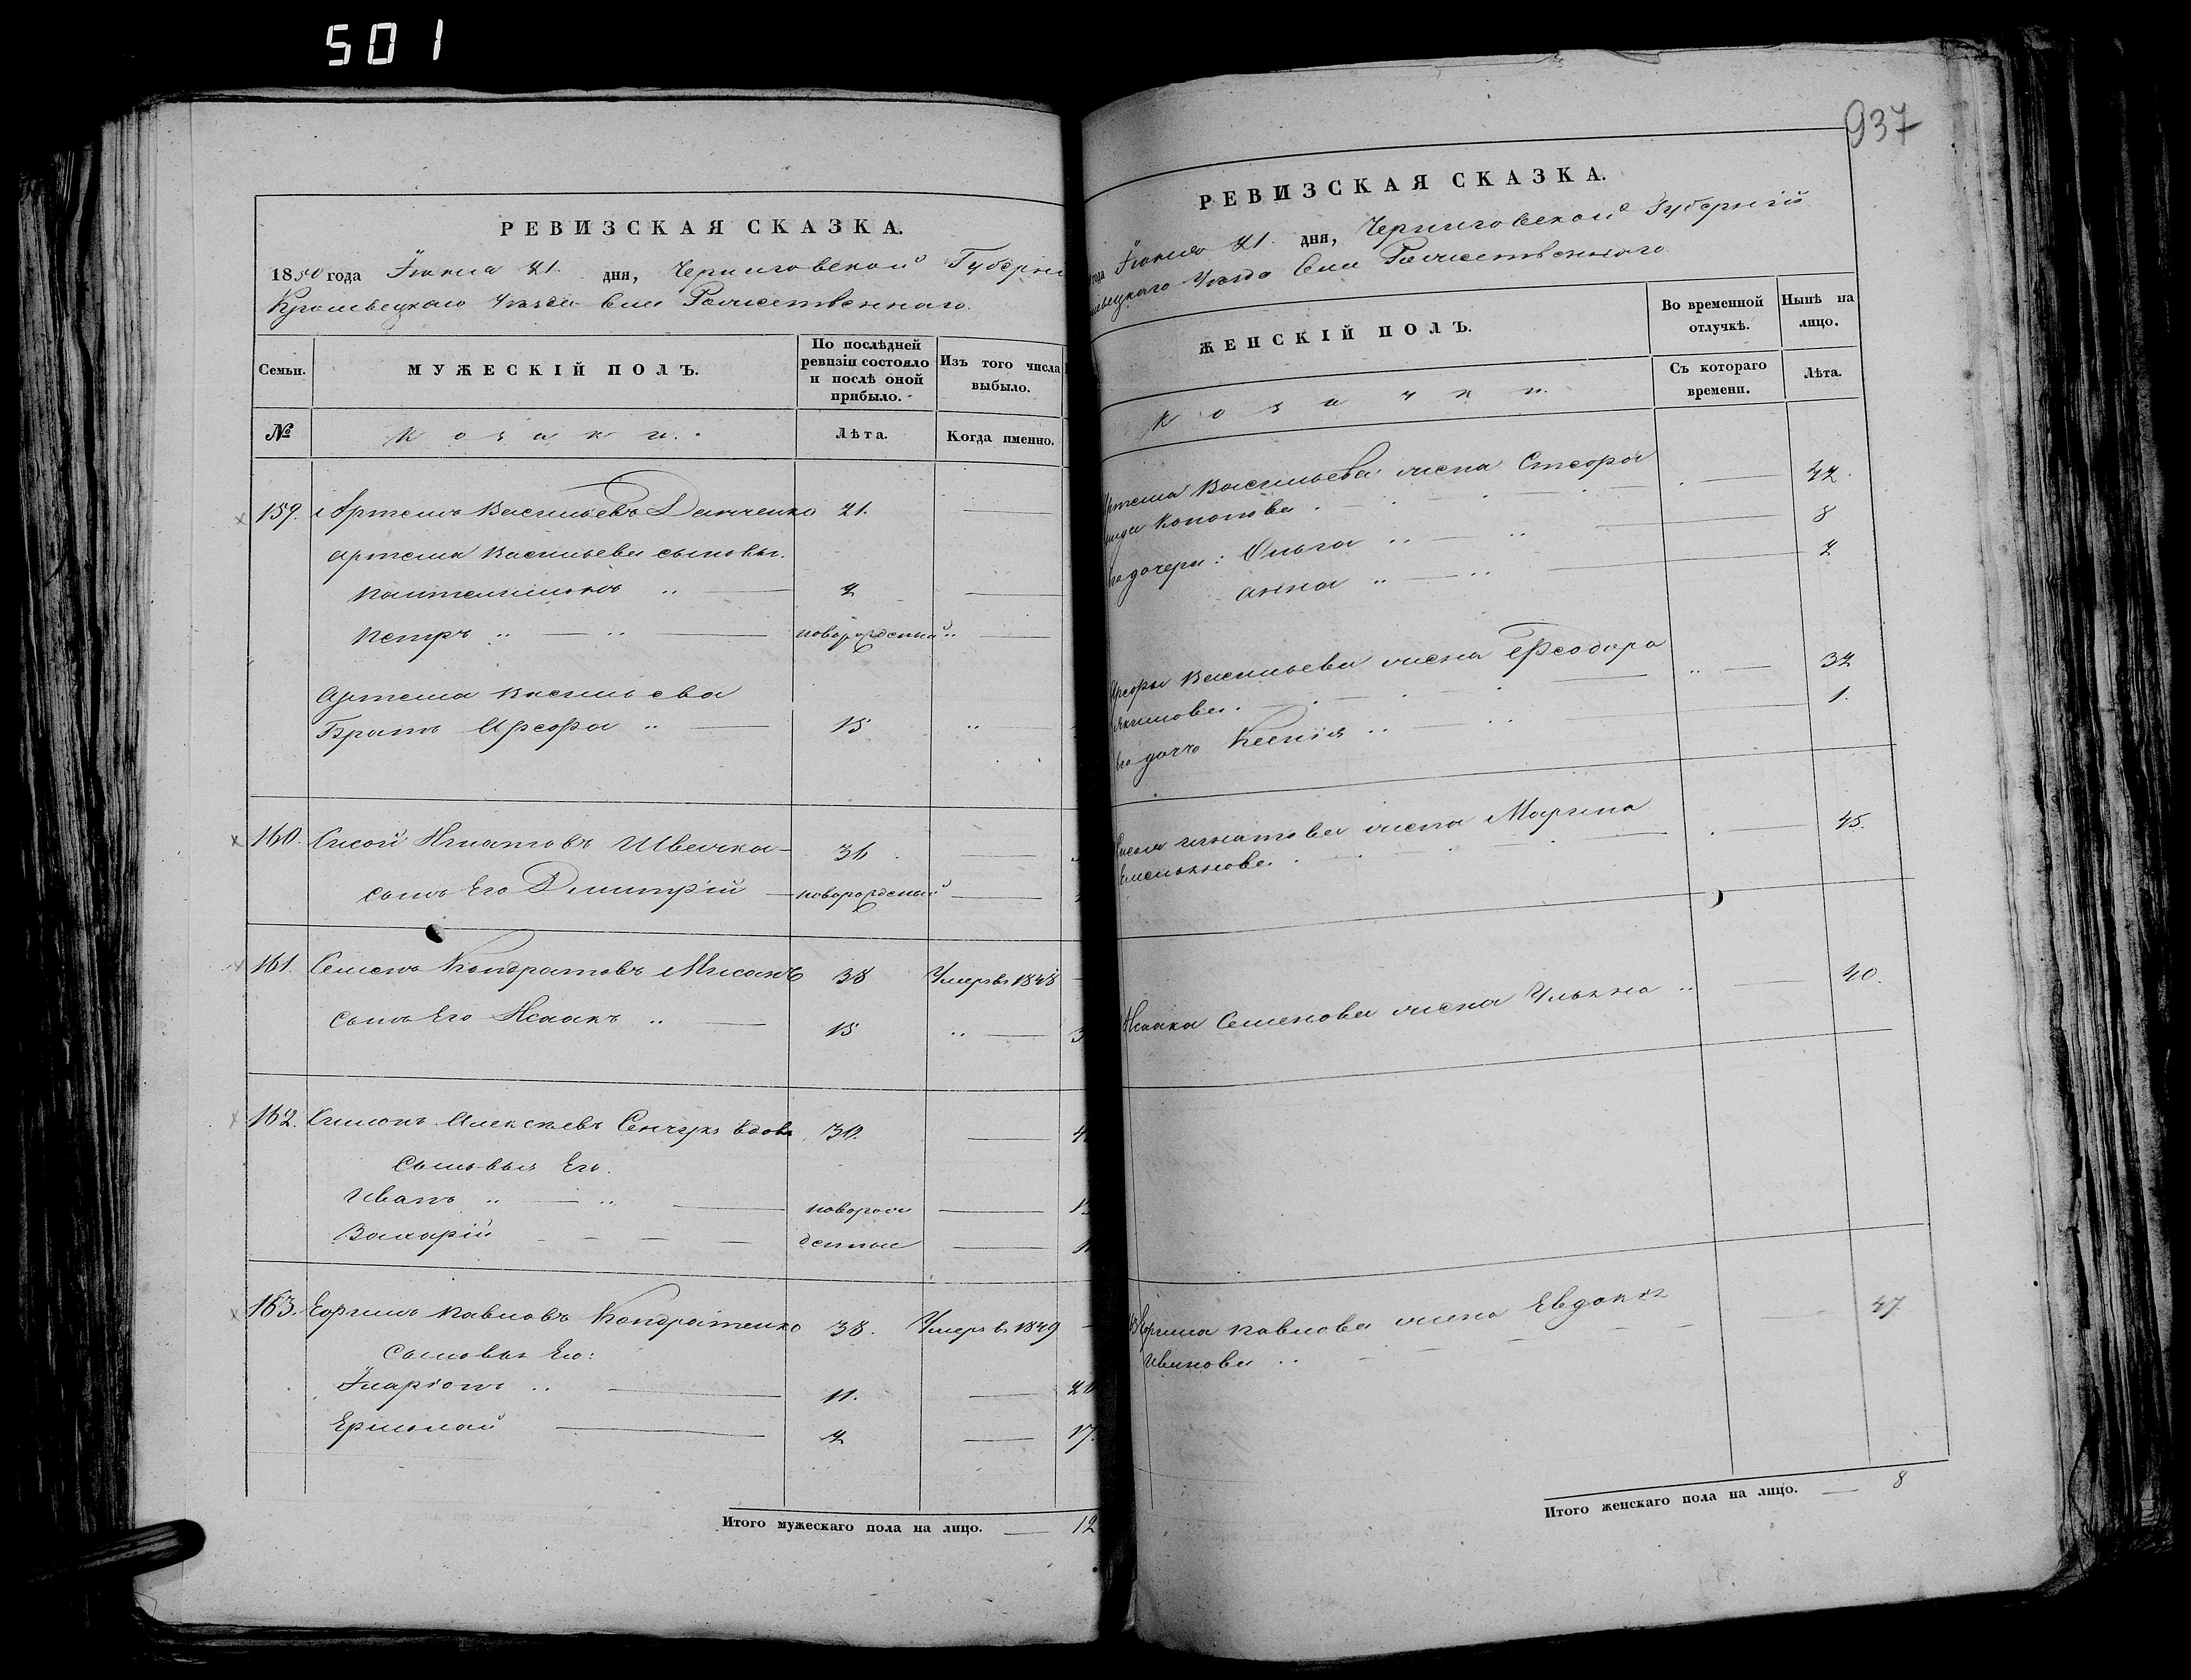 501
РЕВИЗСКАЯ СКАЗКА.
1850 года Іюня 21. дня, Черниговской Губерніи
Кролевецкаго Уезда Села Рожественнаго.
Семьи.
МУЖЕСКІЙ ПОЛЪ.
По послѣдней ревизіи состояло и послѣ оной прибыло.
Изъ того числа выбыло.
№
Козаки.
Лѣта.
Когда именно.
159. Артемъ Васильевъ Данченко 21.
Артема Васильева сыновья.
Пантелимонъ 2
Петръ новорожденый
Артема Васильева
Братъ 15
160. Сисой Игнатовъ Швечка 36
сынъ Его Дмитрій новорожденый
161. Семенъ Кондратовъ 38 Умеръ въ 1848
сынъ Его Исаакъ 15
162. Симонъ Алексѣевъ Сенчукъ вдовъ 30.
Сыновья Его.
Иванъ новорож
Захарій денные
163. Павловъ Кондратенко 38. Умеръ въ 1849
Сыновья Его:
Іларіонъ 11. 21
Ермолай 2 17.
Итого мужескаго пола на лицо. 12
937
РЕВИЗСКАЯ СКАЗКА.
года Іюня 21. дня, Черниговской Губерній
Уезда Села Рожественного
ЖЕНСКІЙ ПОЛЪ.
Во временной отлучкѣ.
Нынѣ на лицо.
Козачки.
Съ котораго времени.
Лѣта.
Артема Васильева жена 42.
Кононова
его дочери: Ольга 8
Анна 2
Васильева жена Феодора 32
Якимова.
его дочь Ксенія 1.
Сисоя Игнатова жена Марина 45.
Емельянова.
Исаака Семенова жена Ульяна 40.
Павлова жена Евдокія 47
Иванова
Итого женскаго пола на лицо. 8